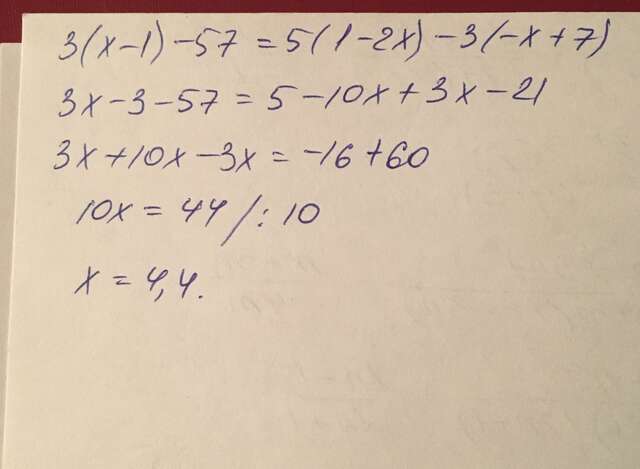 3(x-1)-57=5(1-2x)-3(-x+7)
3x-3-57=5-10x+3x-21
3x+10x-3x=-16+60
10x=44/:10
x=4,4.